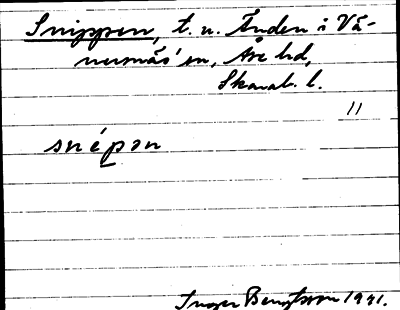 Snippen, t. n. Änden i Vä-
numnäs' sn, Åse hd,
Skarab. l.
11
snépan
Inger Bengtsson 1941.